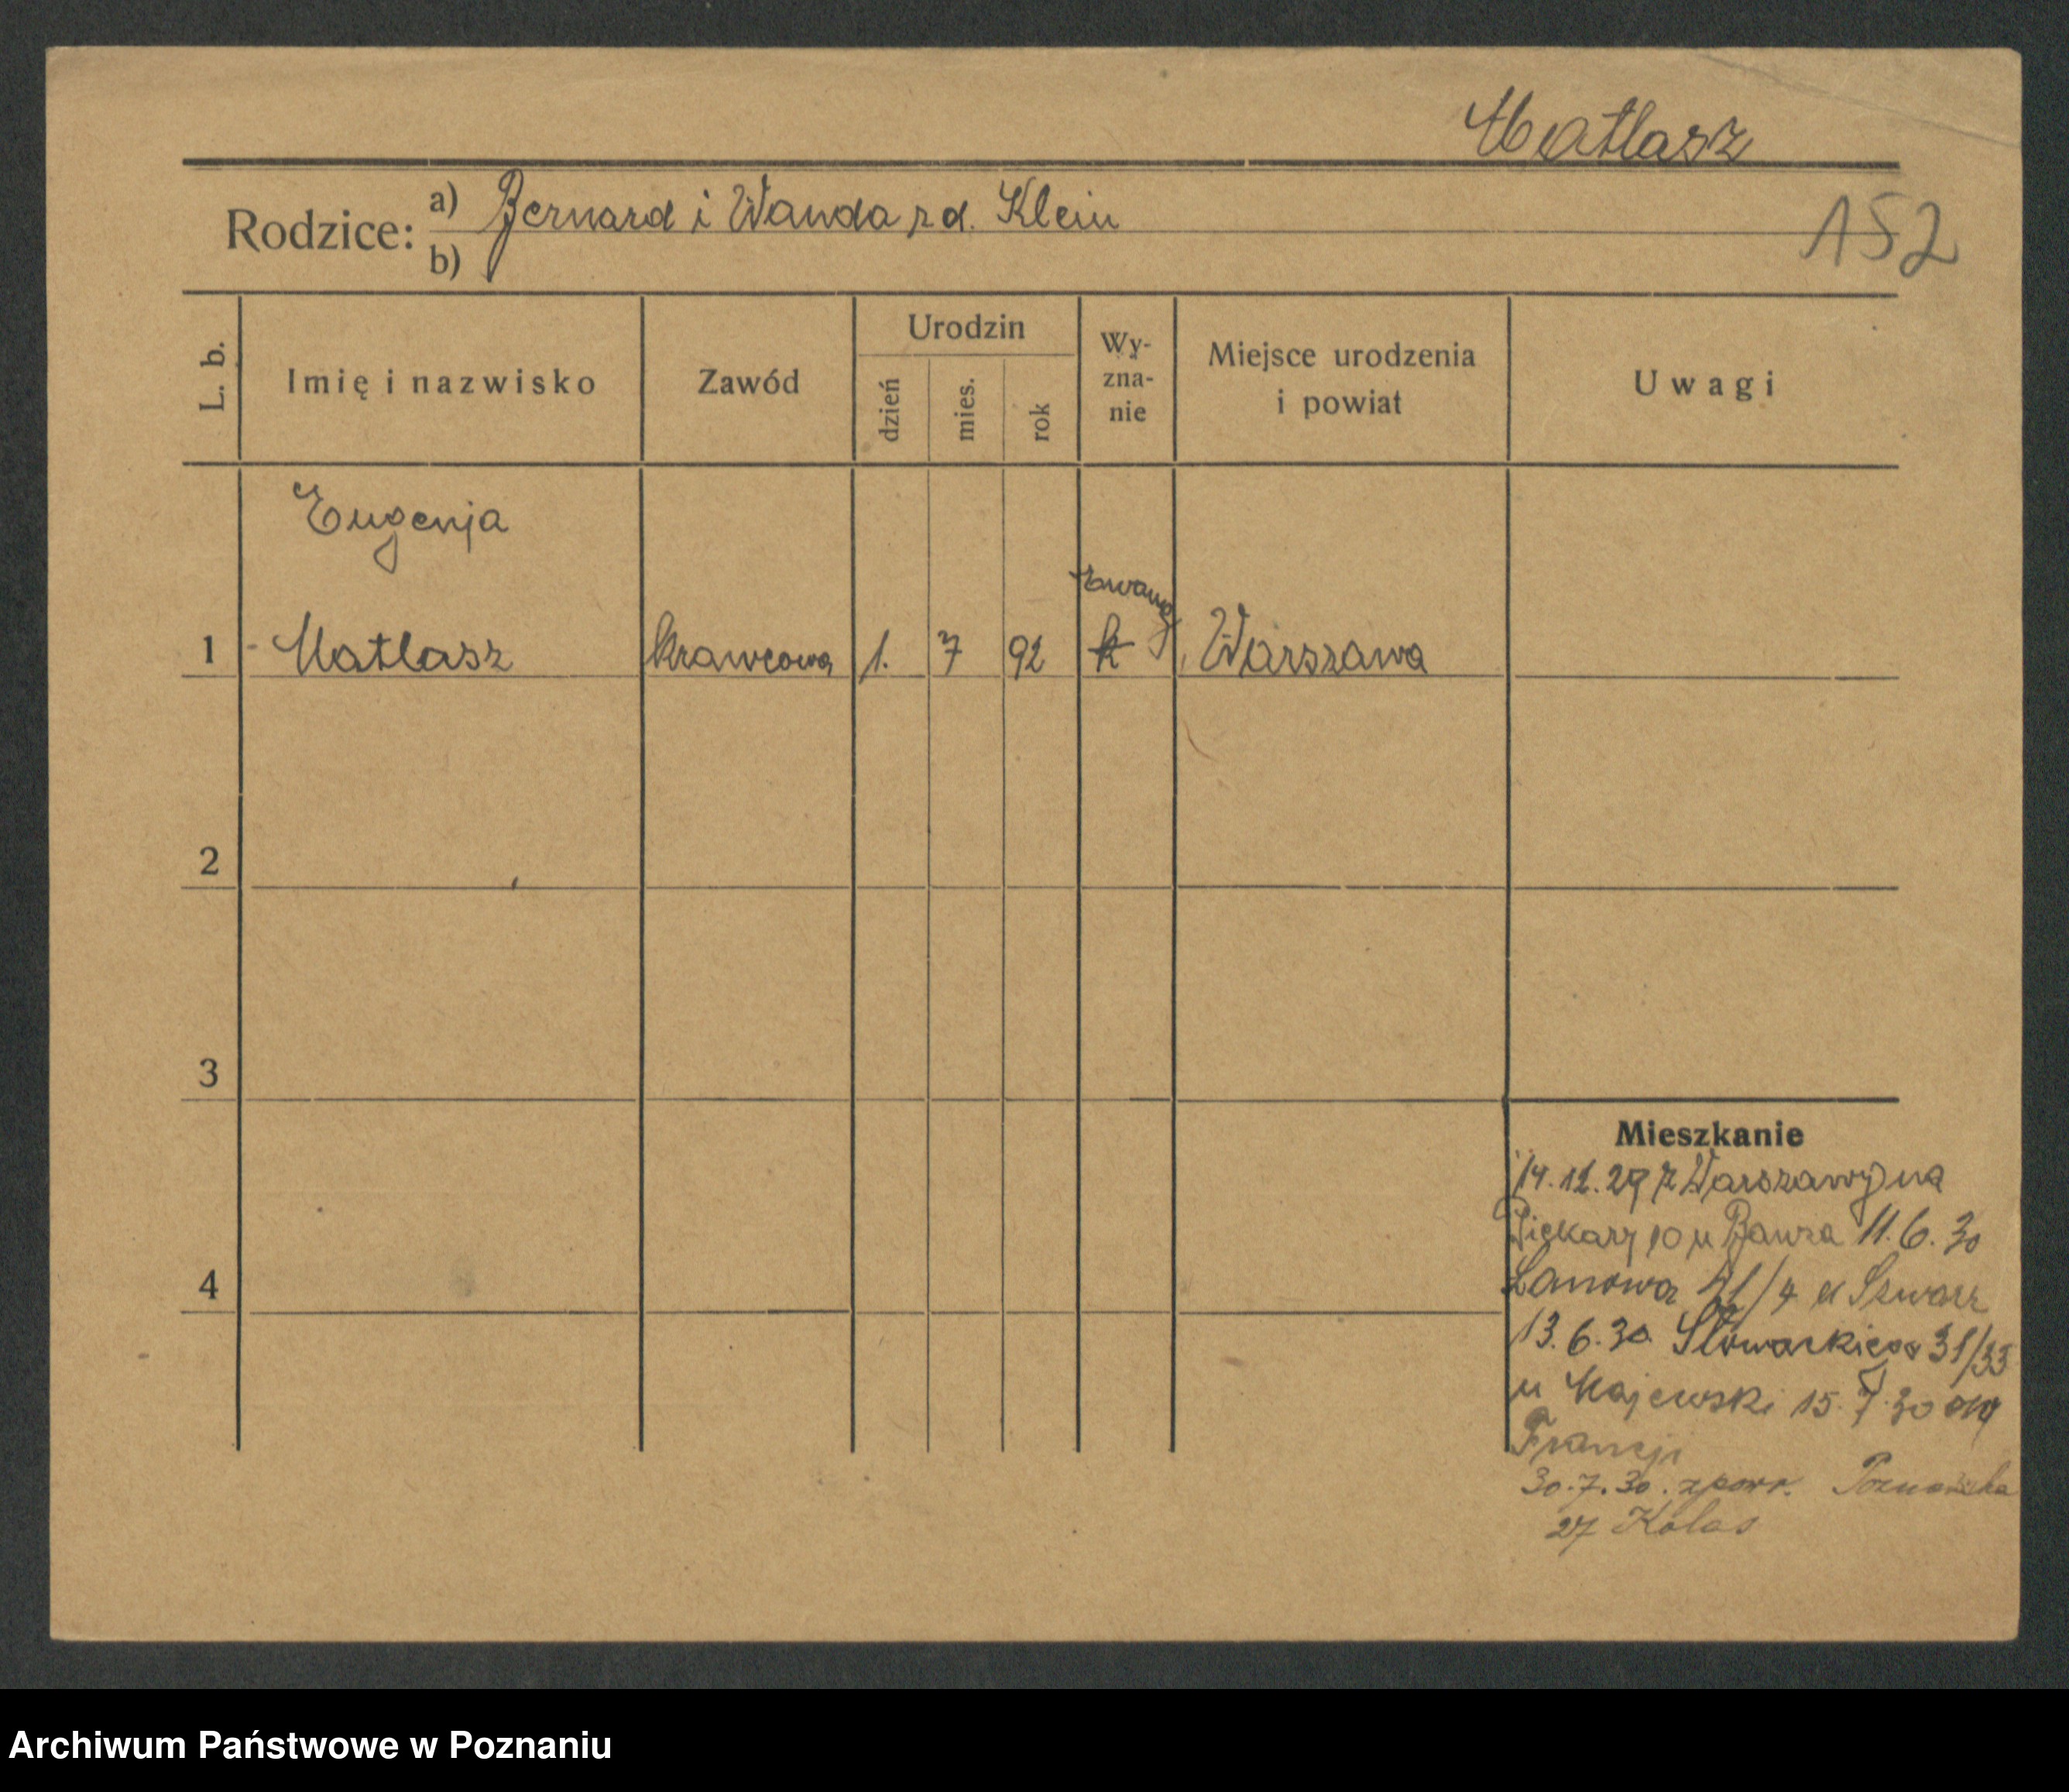 Matlasz
Rodzice: a) Bernard i Wanda rd. Klein
b)
152
L. b.
Imię i nazwisko
Zawód
Urodzin
dzień
mies.
rok
Wy-
zna-
nie
Miejsce urodzenia
i powiat
Uwagi
Eugenja
ewang
1 Matlasz krawcowa 1. 7 92 k Warszawa
2
3
4
Mieszkanie
14.12.29 z Warszawy na
Piekary 10 u 11.6.30
Łanowa /4
13.6.30 Słowackiego 31/33
u Majewski 15.7.30
Francji
30.7.30. zpowr. Poznańska
27 Kolas
Archiwum Państwowe w Poznaniu